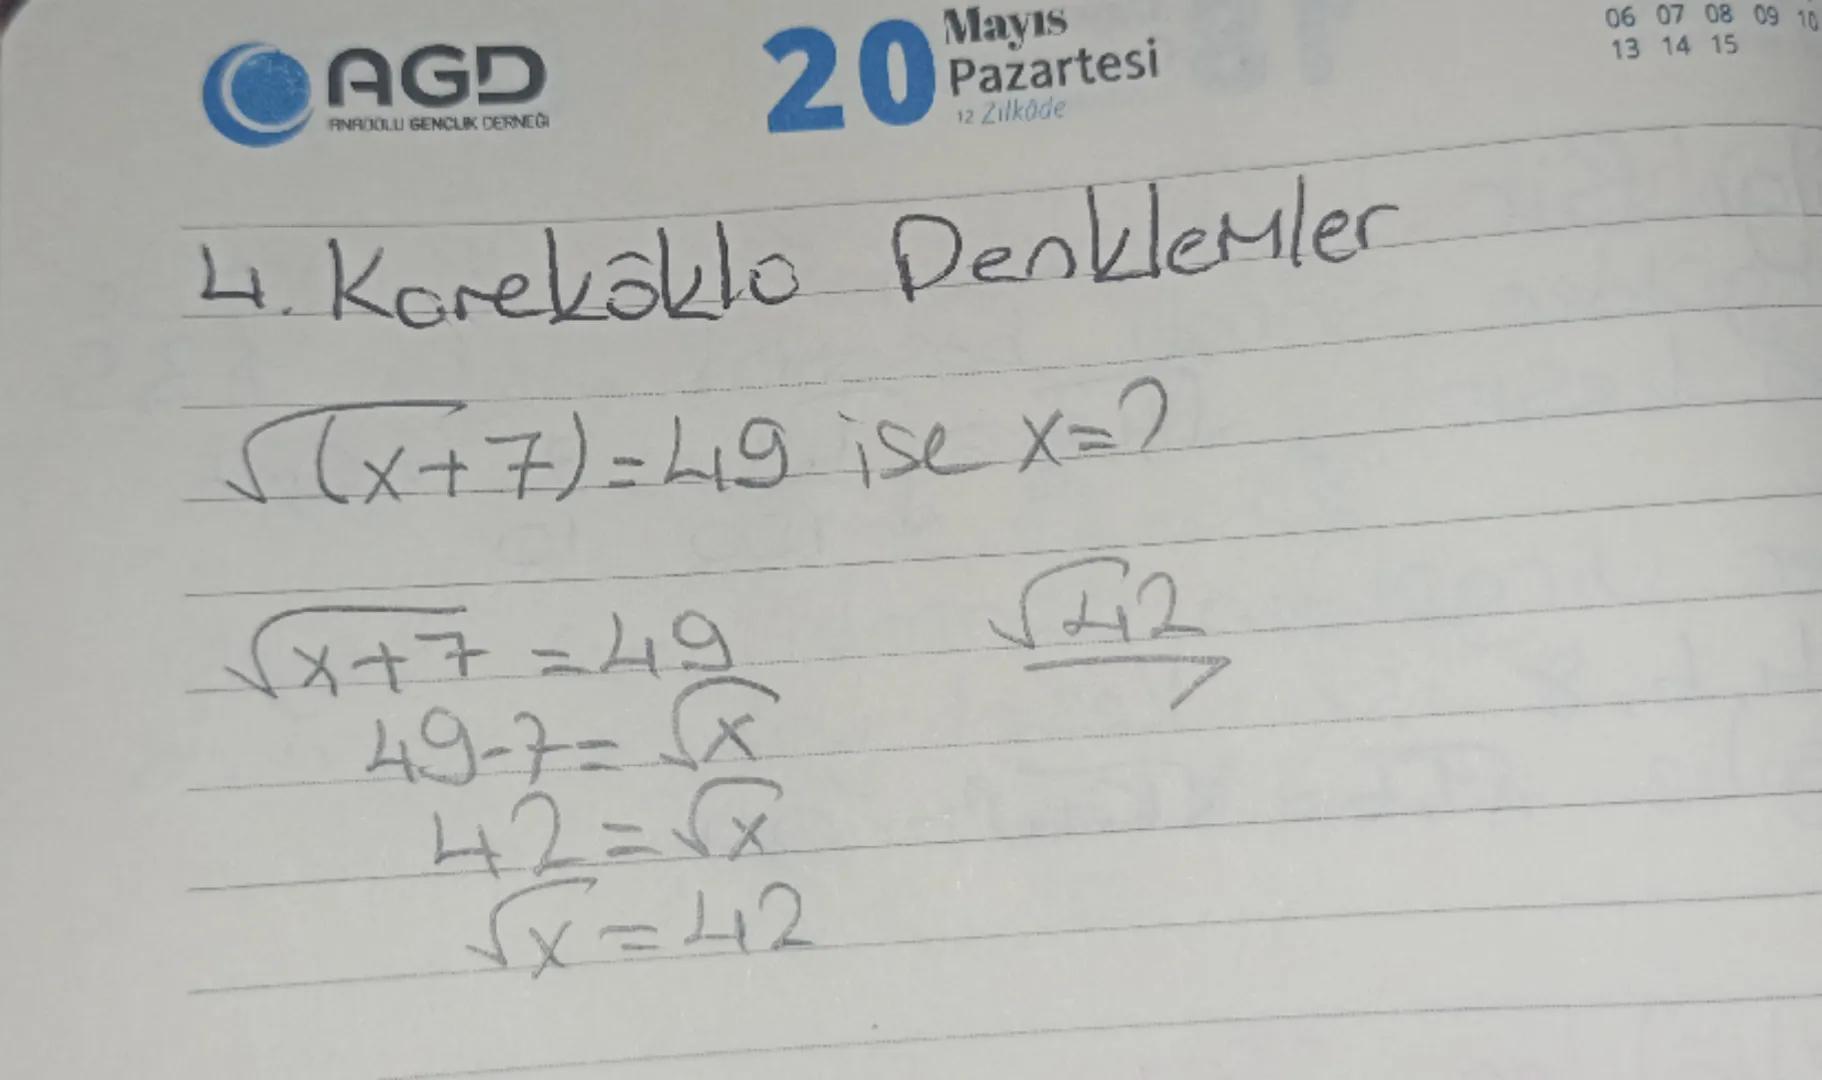 AGD
ANADOLU GENÇLİK DERNEĞİ
20
Mayıs
Pazartesi
12 Zilkâde
06 07 08 09 10
13 14 15
4. Kareköklü Denklemler
√(x+7)=49 ise x=?
√x+7 = 49
√42
49-7= √x
42=√x
√x = 42